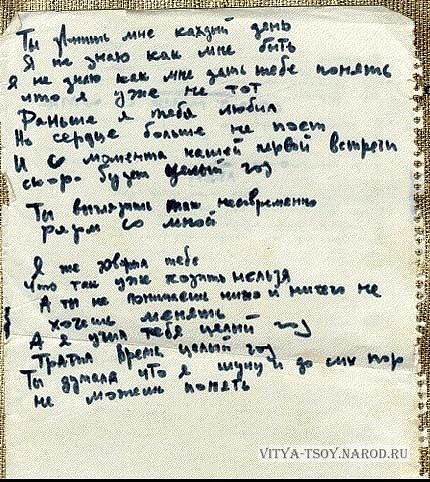 Ты звонишь мне каждый день
Я не знаю как мне быть
Я не знаю как мне дать тебе понять
что я уже не тот
Раньше я тебя любил
Но сердце больше не поет
И с момента нашей первой встречи
скоро будет целый год
Ты выглядишь так несовременно
рядом со мной
Я же говорил тебе
что так уже ходить нельзя
А ты не понимаешь и ничего не
хочешь менять
А я учил тебя целый год
Тратил время целый год
Ты думала что я шучу и до сих пор
не можешь понять
VITYA-TSOY.NAROD.RU